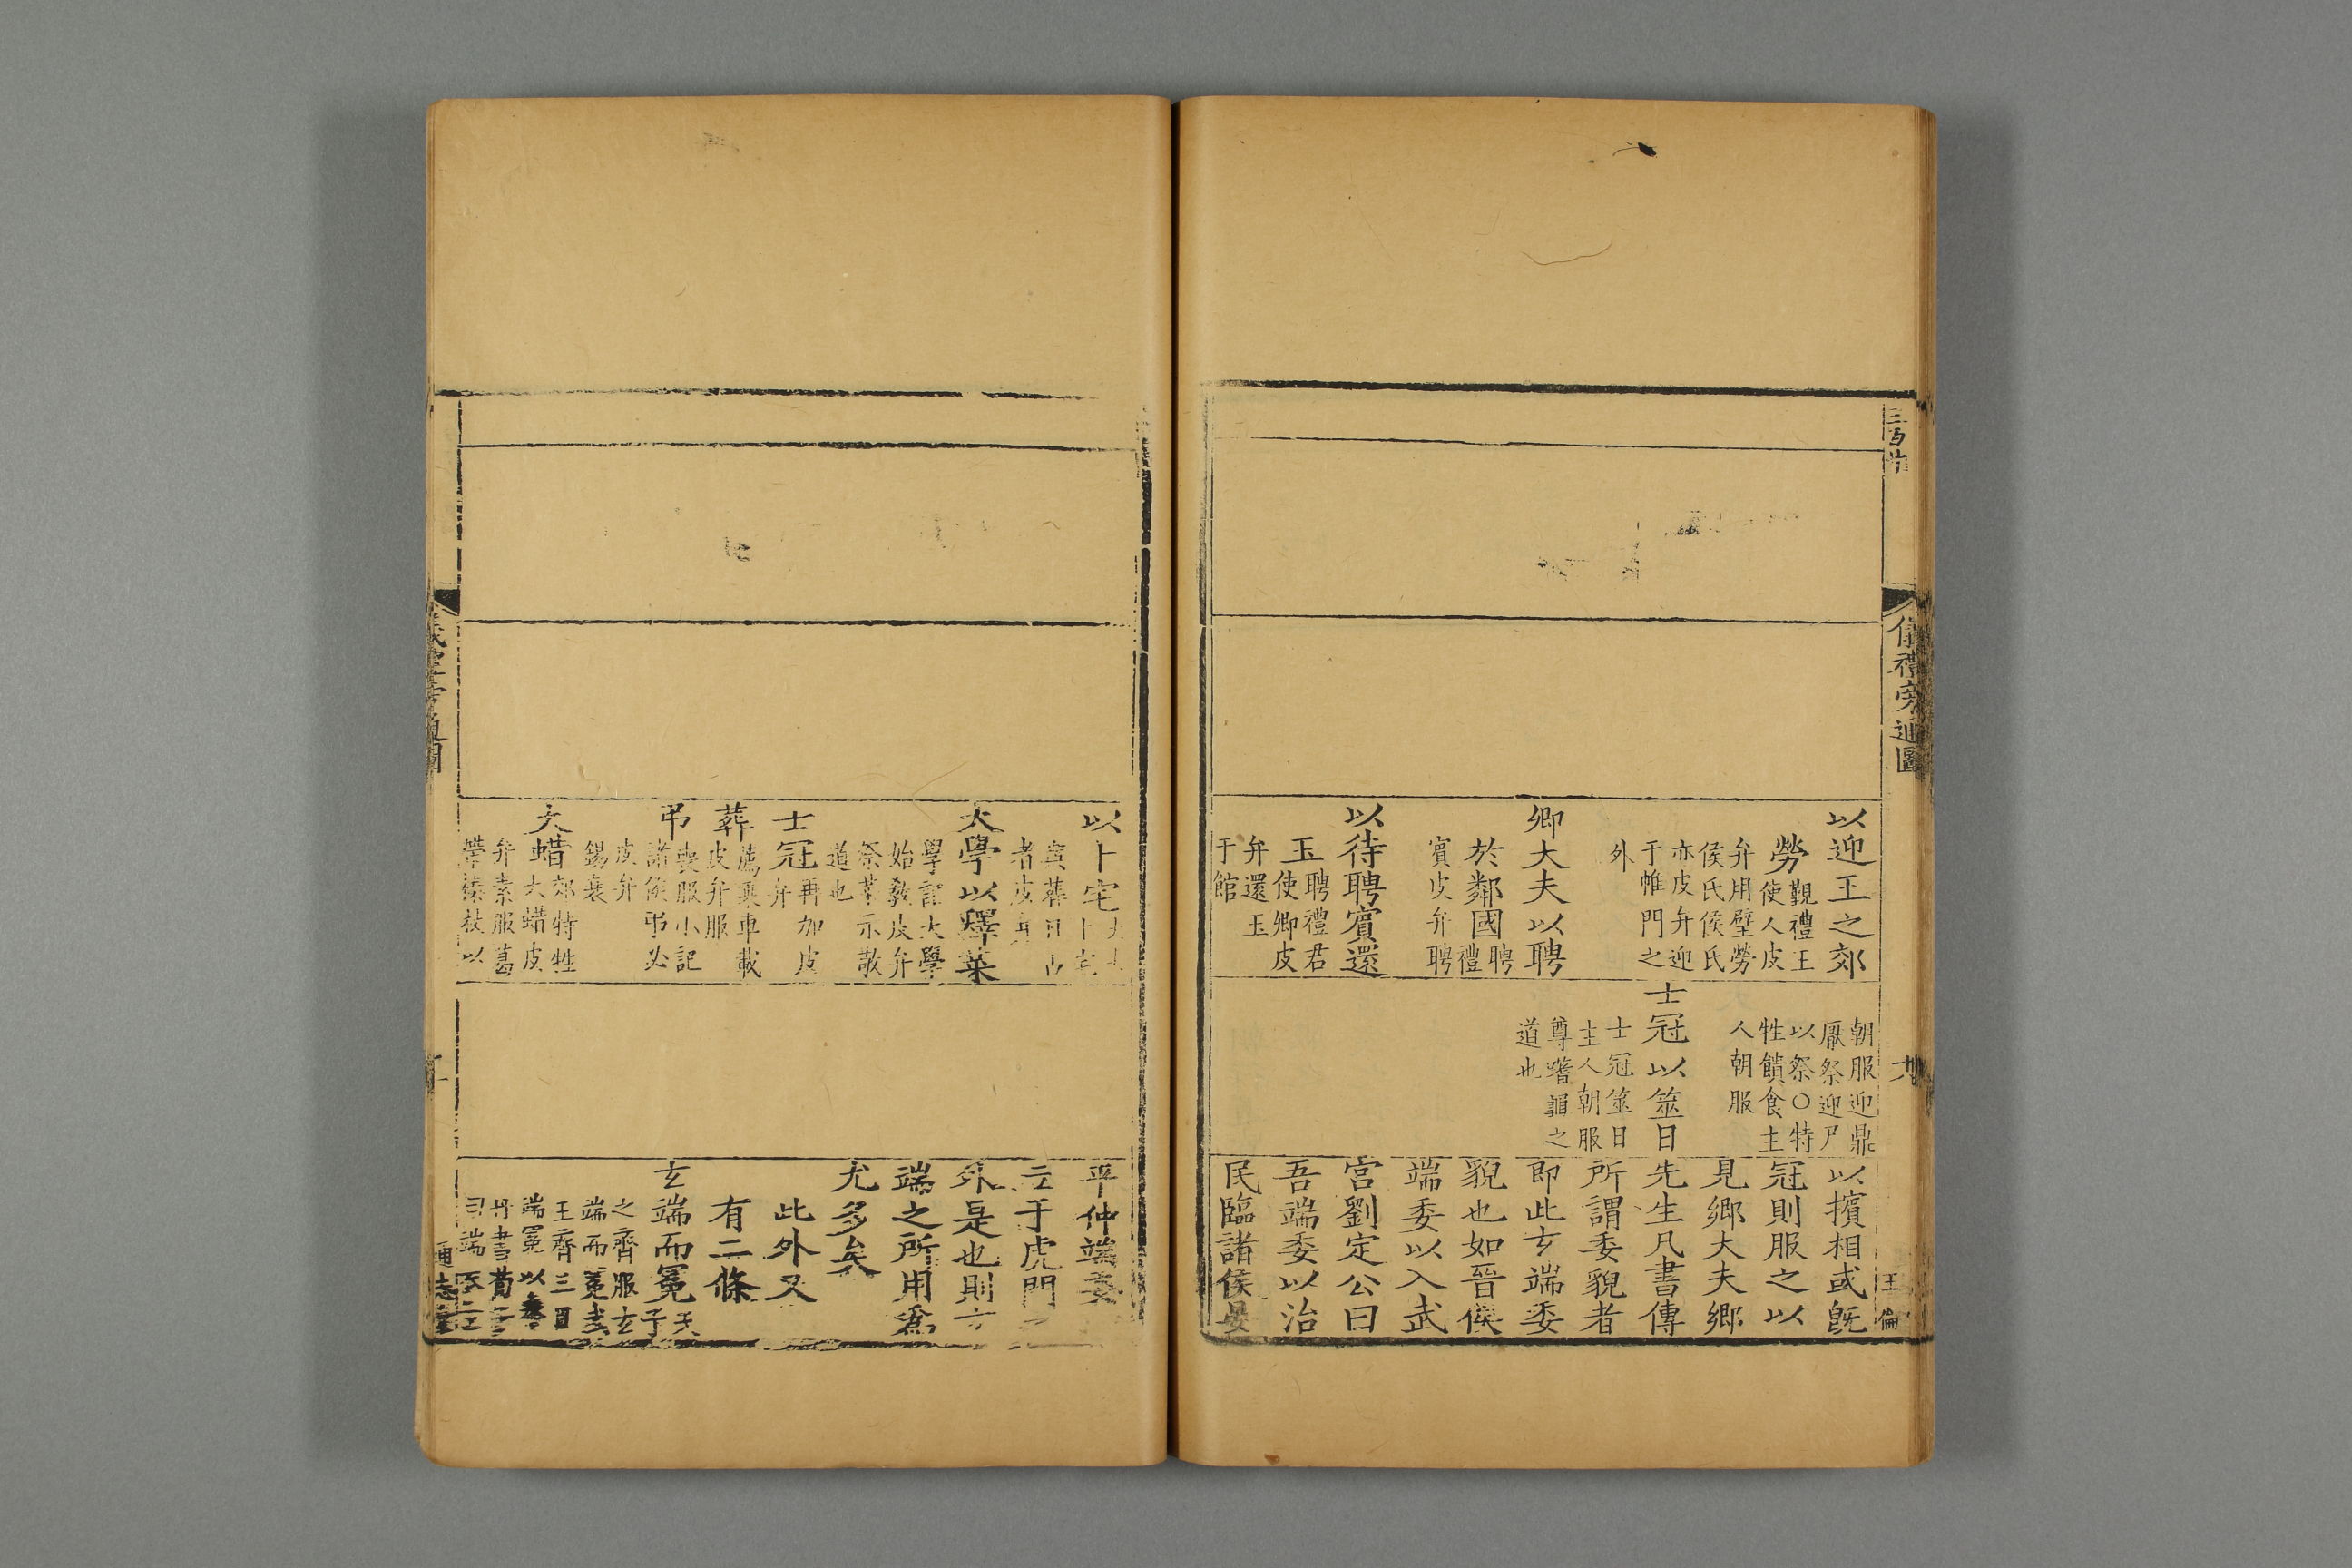 三百廿
儀禮旁通圖
六
王倫
以迎王之郊
勞
覲禮王
使人皮
弁用璧勞
侯氏侯氏
亦皮弁迎
于帷門之
外
卿大夫以聘
於鄰國
聘
禮
賓皮弁聘
以待聘賓還
玉
聘禮君
使卿皮
弁還玉
于館
朝服迎鼎
厭祭迎尸
以祭○特
牲饋食主
人朝服
士冠以筮日
士冠筮日
主人朝服
尊蓍龜之
道也
以擯相或既
冠則服之以
見鄉大夫鄉
先生凡書傳
所謂委貌者
即此玄端委
貌也如晉侯
端委以入武
宮劉定公曰
吾端委以治
民臨諸侯晏
以卜宅
卜宅
與葬日占
者皮弁
大學以釋菜
學記大學
始敎皮弁
祭菜示敬
道也
士冠
再加皮
弁
葬
薦乘車載
皮弁服
弔
喪服小記
諸侯弔必
皮弁
錫衰
大蜡
郊特牲
大蜡皮
弁素服葛
帶榛杖以
平仲端委
立于虎門之
外是也則玄
端之所用爲
尤多矣
此外又
有二條
玄端而冕
天
子
之齊服玄
端而冕武
王齊三日
端冕以奉
丹書荀子
曰端